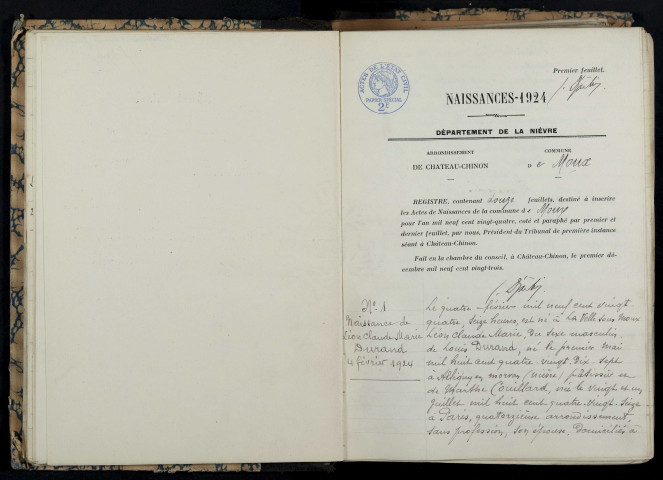 Premier feuillet.
ACTES DE L'ETAT CIVIL
PAPIER SPECIAL
2F
NAISSANCES-1924
DÉPARTEMENT DE LA NIÈVRE
ARRONDISSEMENT
DE CHATEAU-CHINON
COMMUNE
D e Moux
REGISTRE, contenant douze feuillets, destiné à inscrire
les Actes de Naissances de la commune de Moux
pour l'an mil neuf cent vingt-quatre, coté et paraphé par premier et
dernier feuillet, par nous, Président du Tribunal de première instance
séant à Château-Chinon.
Fait en la chambre du conseil, à Château-Chinon, le premier dé-
cembre mil neuf cent vingt-trois.
N° 1
Naissance de
Léon Claude Marie
Durand
4 février 1924
Le quatre février mil neuf cent vingt
quatre, seize heures, est né à La
Léon Claude Marie, du sexe masculin,
de Louis Durand, né le premier mai
mil huit cent quatre-vingt-dix-sept
à Alligny en morvan (nièvre) pâtissier et
de Marthe Couillard, née le vingt et un
juillet mil huit cent quatre-vingt-seize
à Paris, quatorzième arrondissement
sans profession, son épouse, domiciliés à